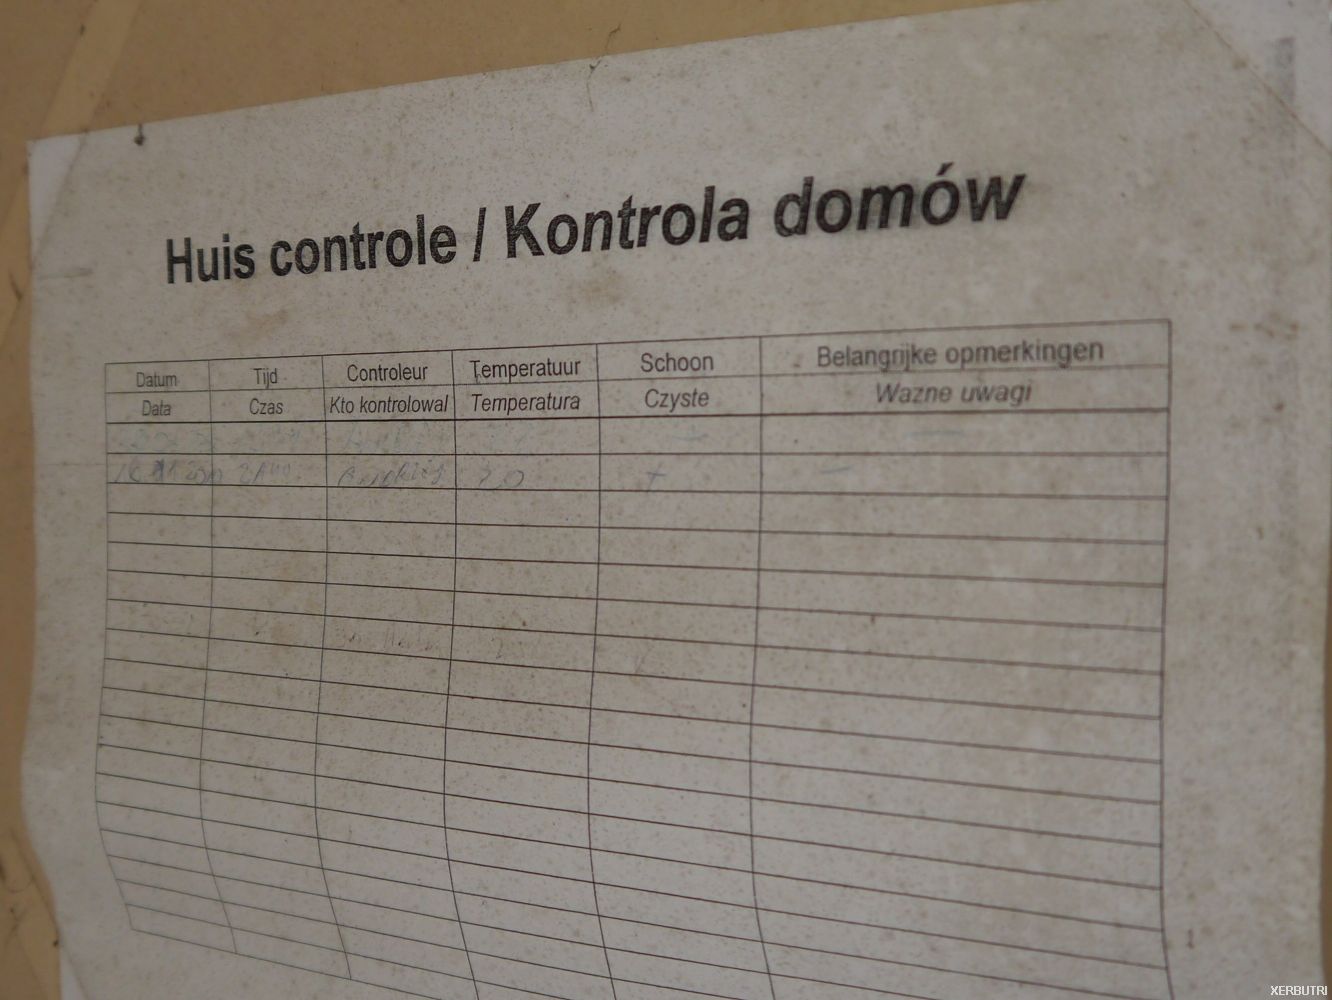 Huis controle / Kontrola domów
Datum Tijd Controleur Temperatuur Schoon Belangrijke opmerkingen
Data Czas Kto kontrolowal Temperatura Czyste Wazne uwagi
20 + -
XERBUTRI